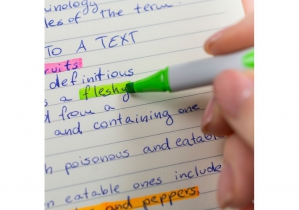 les of the term
TO A TEXT
ruits
definitious
s a fleshy
d from a
and containing one
h poisonous and eatable
n eatable ones include
and peppers